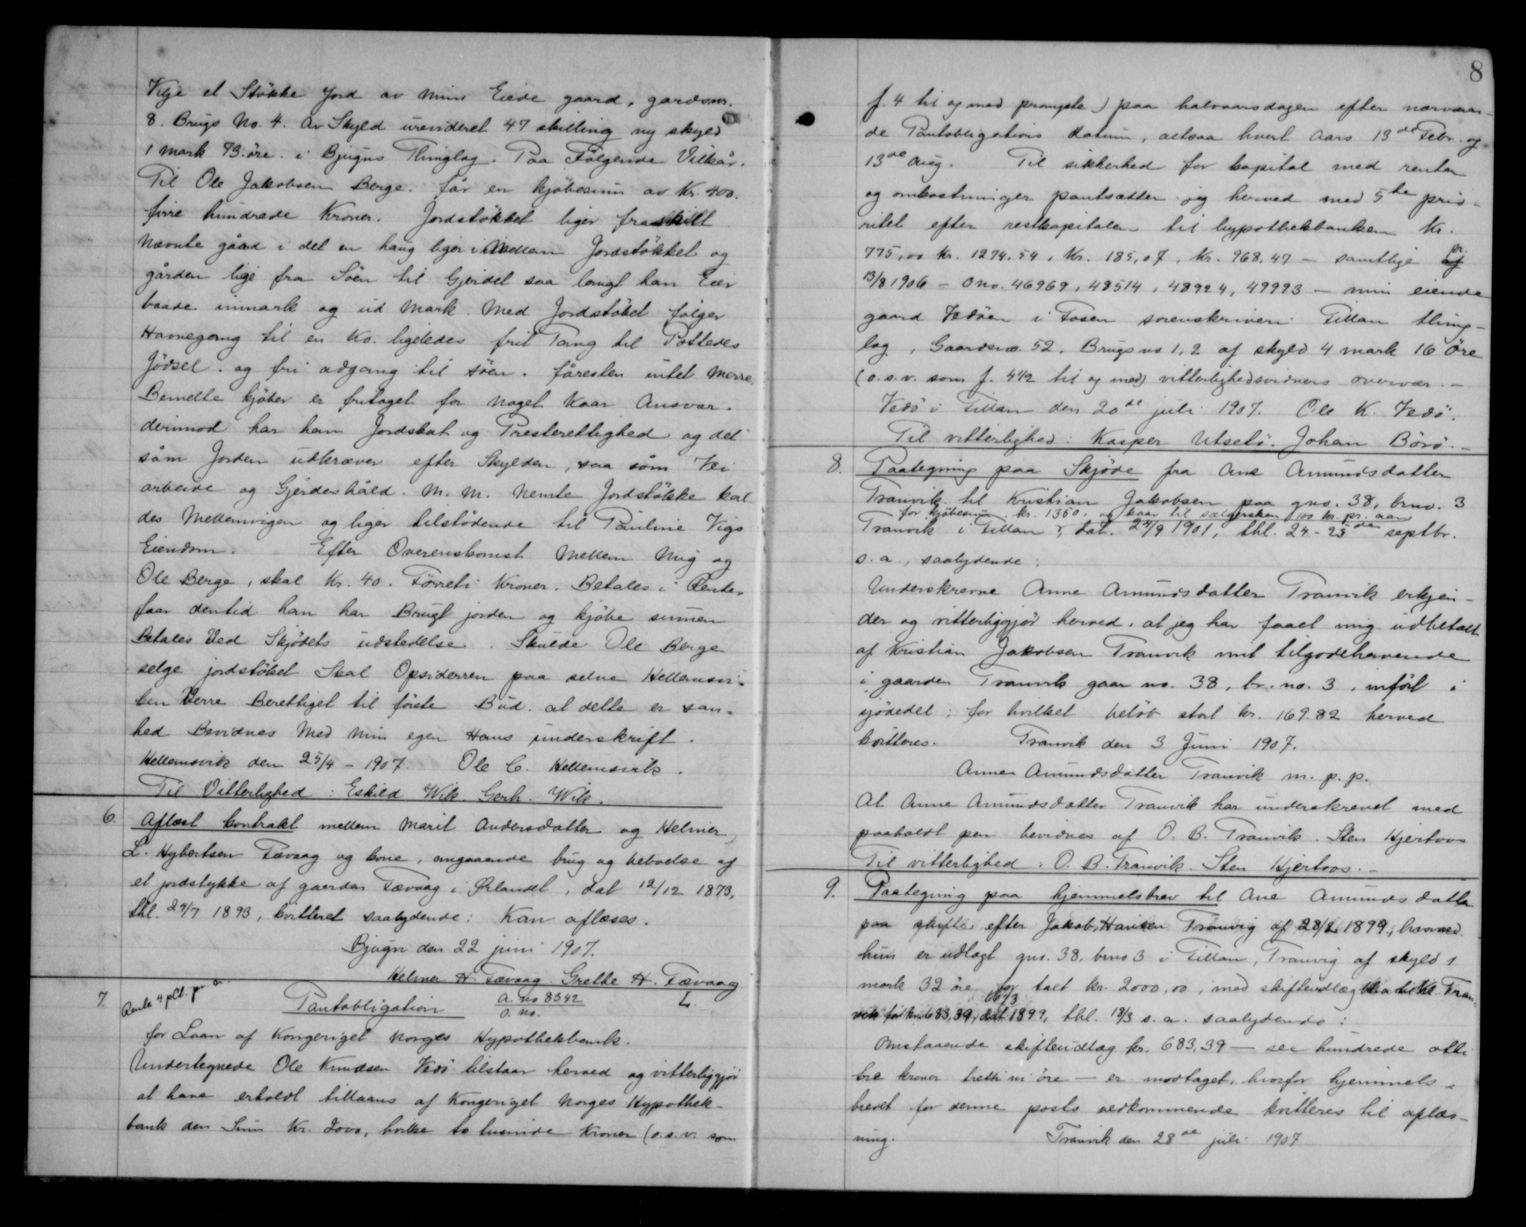 Vige et Støkke Jord av min Eiede gaard, gardsnr.
8. Brugs No. 4. Av Skyld urevideret 47 skilling ny skyld
1 mark 93 øre. i Bjugns Thinglag. Paa Følgende Vilkår.
Til Ole Jakobsen Berge. får en kjøbesum av Kr. 400.
firre hundrede Kroner. Jordstøkket liger fraskilt
nævnte gård i det en haug liger i Mellem Jordstøkket og
gården lige fra Søen til Gjerdet saa langt han Eier
baade inmark og ud mark. Med Jordstøket følger
Havnegang til en Ko. ligeledes frit Tang til Pottedes
fødsel. og fri adgang til søen. fåresten intet merre.
Bemelte kjøber er fritaget for noget Kaar Ansvar.
derimod har han Jordskat og Presterettighed og det
såm Jorden udkræver efter Skylden, saa såm Vei
arbeide og Gjerdeshåld. M. M. nemte Jordstøkke kal
des Mellemvigen og liger tilstødende til Pauline Vigs
Eiendom. Efter Overenskomst Mellem Mig og
Ole Berge, skal Kr. 40. Førreti Kroner. Betales i Renter
faar dentid han har Brugt jorden og kjøbe summen
Betales Ved Skjødets udstedelse. Skulde Ole Berge
selge jordstøket Skal Opsidderren paa selve Hellemsvi-
ken Verre Berettiget til føiste Bud. at dette er san-
hed Bevidnes Med min egen Hans underskrift.
Hellemsvik den 25/4 - 1907. Ole C. Hellemsvik.
Til Vitterlighed: Eskild Wik. Gerh. Wik.
6. Aflæst Contrakt mellem Marit Andersdatter og Helmer
L. Hybertsen Fævaag og Cone, angaaende brug og beboelse af
et jordstykke af gaarden Fævaag i Ørlandet, dat 12/12 1873,
thl. 24/7 1893, kvitteret saalydende: Kan aflæses.
Bjugn den 22 juni 1907.
Helmer H. Fævaag Grethe H. Fævaag
7. Rente 4 pCt. p. a. Pantobligation A. no 8342 L.
O. no.
for Laan af Kongeriget Norges Hypothekbank.
Undertegnede Ole Knudsen Vedø tilstaar herved og vitterliggjør
at have erholdt tillaans af Kongeriget Norges Hypothek-
bank den Sum Kr. 2000, hvilke to tusinde Kroner (o.s.v. som
8
f. 4 til og med prompte) paa halvaarsdagen efter nærværen-
de Pantobligations datum, altsaa hvert aars 13de Febr. og
13de Aug. Til sikkerhed for kapital med renter
og omkostninger pantsætter jeg herved med 5te prio-
ritet efter restkapitalen til hypothekbanken Kr.
775,00 Kr. 1274.54, Kr. 185,07, Kr. 968,47 - samtlige pr.
13/8 1906 - Ono. 46969, 48514, 48924, 49993 - min eiende
gaard Vedøen i Fosen sorenskriveri Fillan thing-
lag, Gaardsno. 52, Brugsno 1,2 af skyld 4 mark 16 øre
(o.s.v. som f. 442 til og med) vitterlighedsvidners overvær. -
Vedø i Fillan den 20de juli 1907. Ole K. Vedø.
Til vitterlighed: Kasper Utsetø. Johan Børø. -
8. Paategning paa Skjøde fra Ane Amundsdatter
Tranvik til Kristian Jakobsen paa gno. 38, brno. 3
for kjøbesum kr. 1350, og kaar til sælgersken 100 kr. pr. aar
Tranvik i Fillan, dat. 23/9 1901, thl. 24 - 25de septbr.
s. a., saalydende:
Underskrevne Anne Amundsdatter Tranvik erkjen-
der og vitterliggjør herved, at jeg har faaet mig udbetalt
af Kristian Jakobsen Tranvik mit tilgodehavende
i gaarden Tranvik gaar no. 38, br. no. 3, inført i
sjødedet; for hvilket beløb stort kr. 169.82 herved
kvitteres. Tranvik den 3 Juni 1907.
Anne Amundsdatter Tranvik m. p. p.
At Anne Amundsdatter Tranvik har underskrevet med
paaholdt pen bevidnes af O. B. Tranvik. Sten Hjertvos
Til vitterlighed: O. B. Tranvik. Sten Hjertvos. -
9. Paategning paa hjemmelsbrev til Ane Amundsdatter
paa skifte efter Jakob Hansen Tranvig af 28/2 1899, hvorved
hun er udlagt gno. 38, brno 3 i Fillan, Tranvig af skyld 1
mark 32 øre for talt kr. 2000,00, med skifteudlæg
683,39, dat 1899, thl. 13/3 s. a. saalydende:
Omstaaende skifteudlæg kr. 683,39 - sex hundrede otti
tre kroner tretti ni øre - er modtaget, hvorfor hjemmels-
brevet for denne posts vedkommende kvitteres til aflæs-
ning. Tranvik den 28de juli 1907